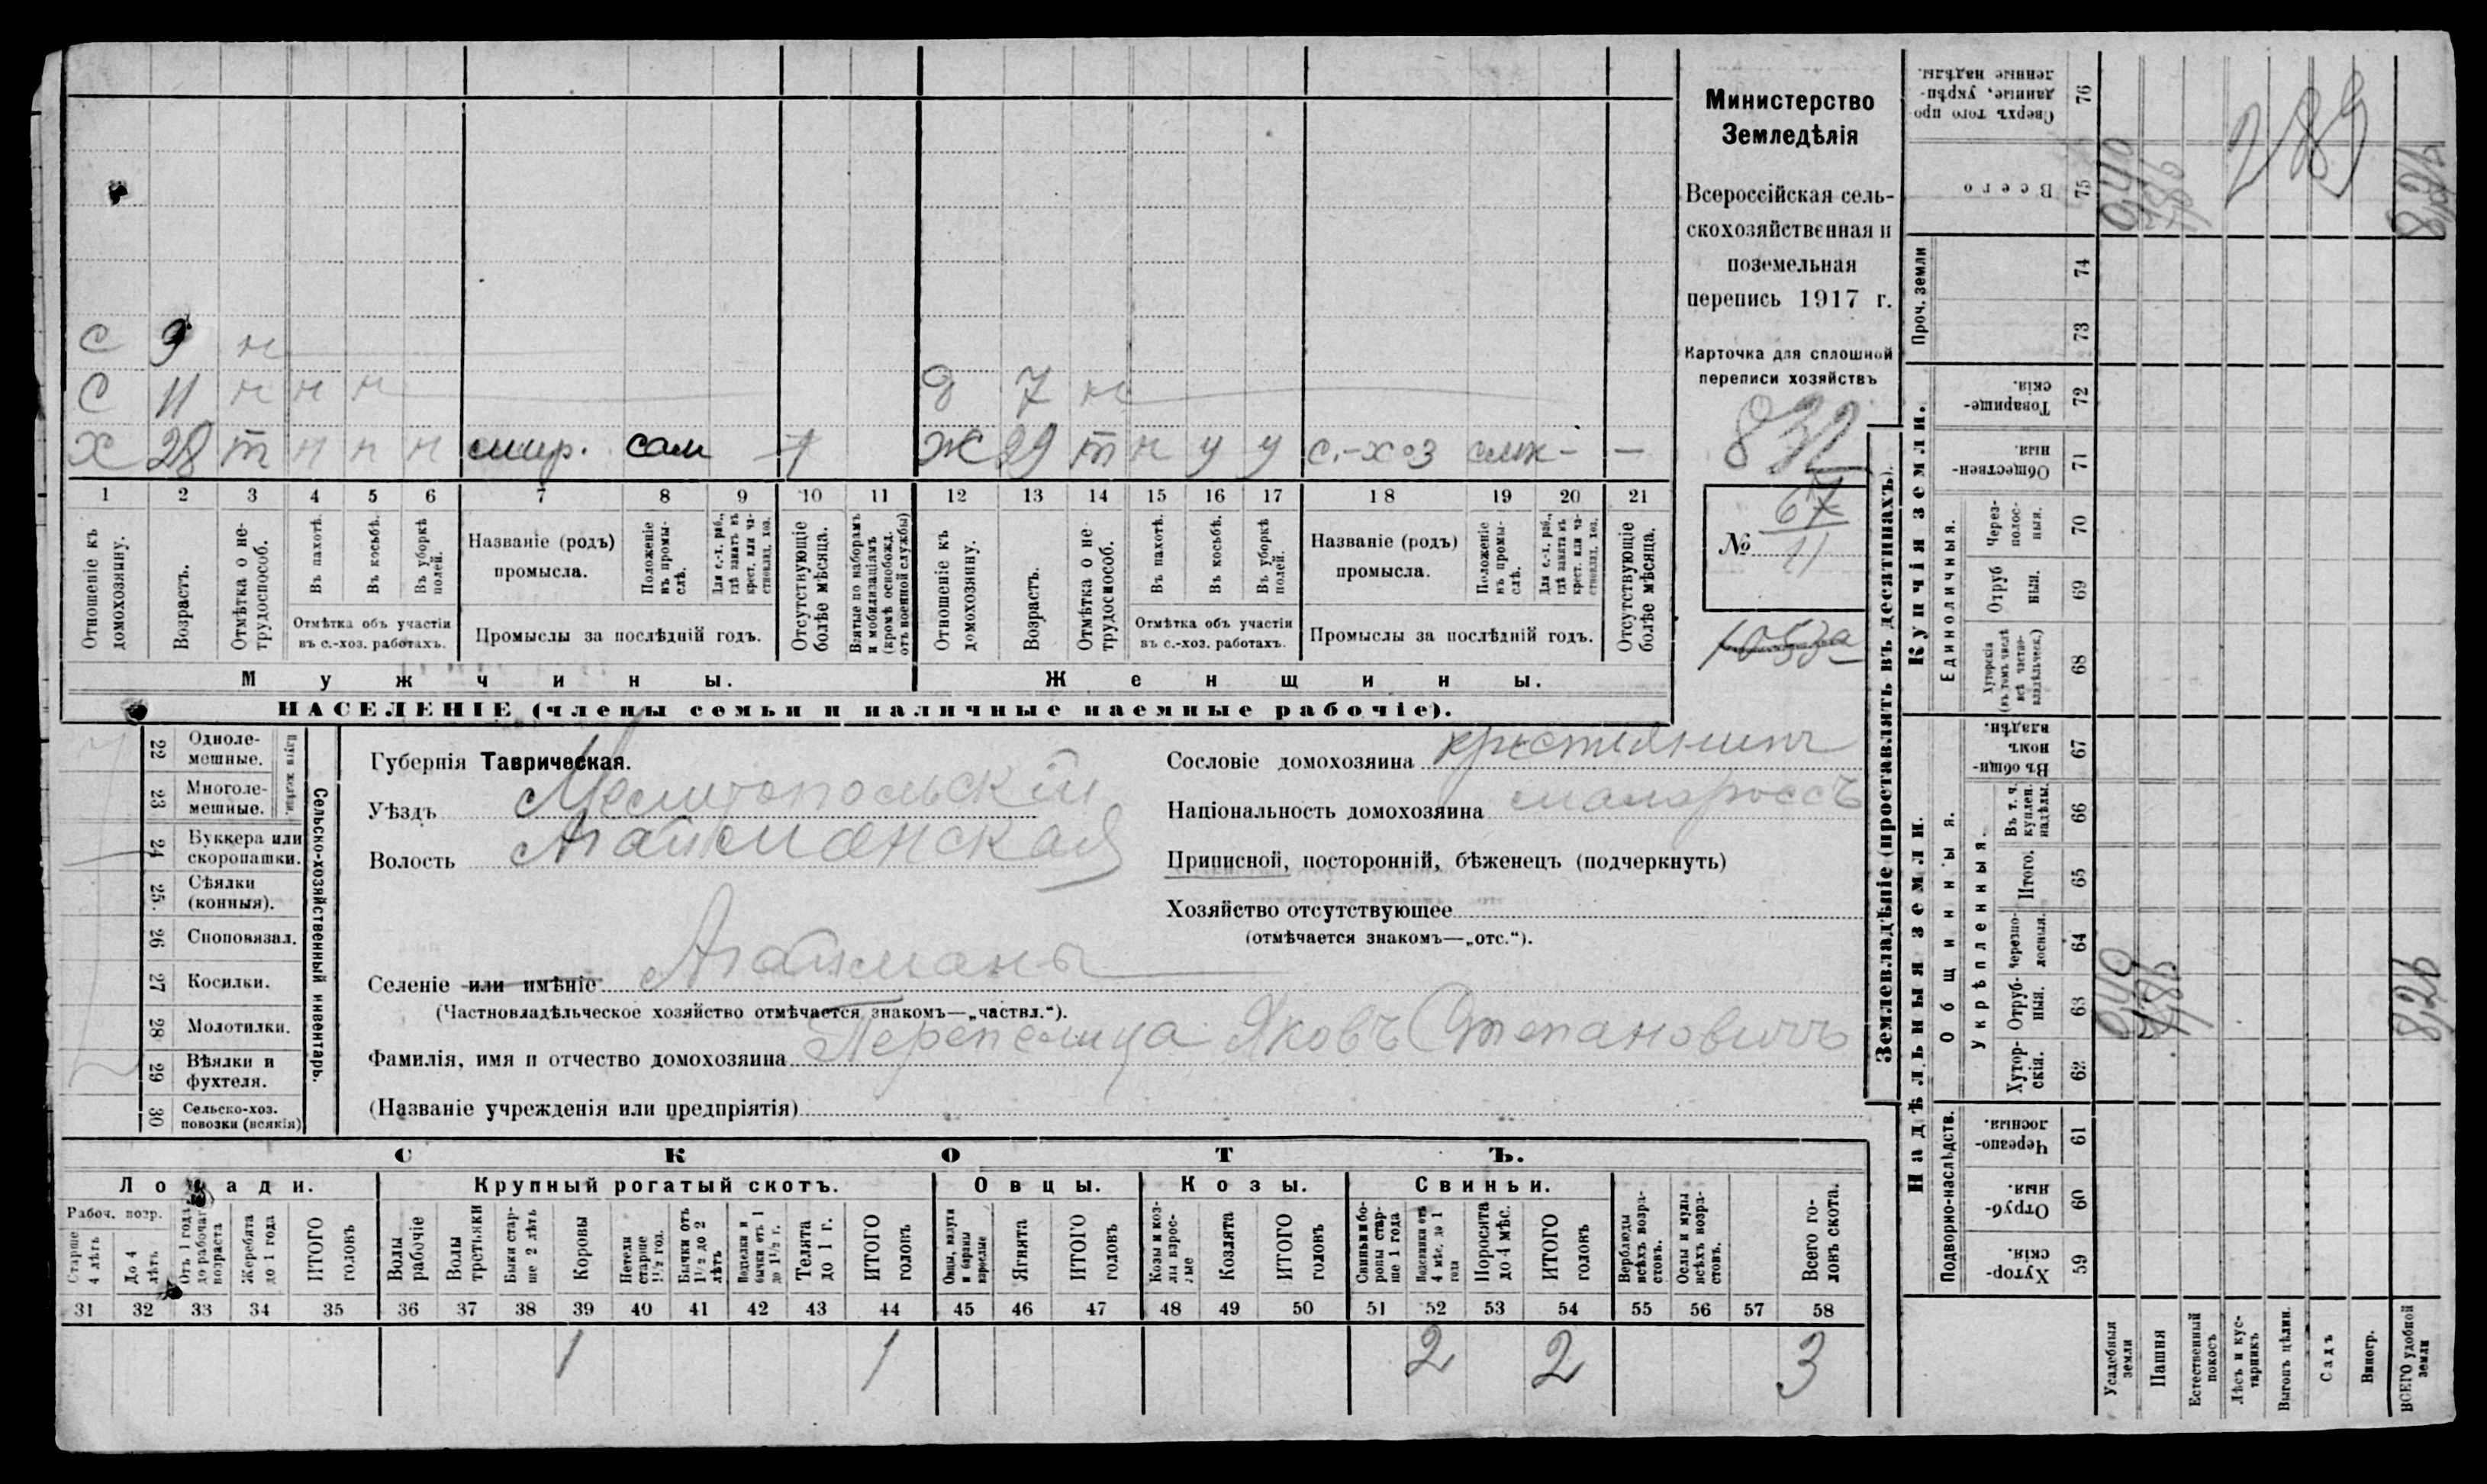 С 9 н
С 11 н н н
Х 28 т н н н сам 1
д 7 н
Ж 29 т н у у с.-хоз –
1 2 3 4 5 6 7 8 9 10 11 12 13 14 15 16 17 18 19 20 21
Отношеніе къ домохозяину.
Возрастъ.
Отмѣтка о нетрудоспособ.
Въ пахотѣ.
Въ косьбѣ.
Въ уборкѣ полей.
Отмѣтка объ участіи въ с.-хоз. работахъ.
Названіе (родъ) промысла.
Положеніе въ промыслѣ.
Для с.-х. раб., гдѣ занятъ въ крест. или частновлад. хоз.
Промыслы за послѣдній годъ.
Отсутствующіе болѣе мѣсяца.
Взятые по наборамъ и мобилизаціямъ (кромѣ освобожд. отъ военной службы)
Отношеніе къ домохозяину.
Возрастъ.
Отмѣтка о нетрудоспособ.
Въ пахотѣ.
Въ косьбѣ.
Въ уборкѣ полей.
Отмѣтка объ участіи въ с.-хоз. работахъ.
Названіе (родъ) промысла.
Положеніе въ промыслѣ.
Для с.-х. раб., гдѣ занята въ крест. или частновлад. хоз.
Промыслы за послѣдній годъ.
Отсутствующіе болѣе мѣсяца.
Мужчины.
Женщины.
НАСЕЛЕНІЕ (члены семьи и наличные наемные рабочіе).
Министерство
Земледѣлія
Всероссійская сель-
скохозяйственная и
поземельная
перепись 1917 г.
Карточка для сплошной
переписи хозяйствъ
832
67
№ 11
1053а
22 Одноле-
мешные.
23 Многоле-
мешные.
24 Буккера или
скоропашки.
25. Сѣялки
(конныя).
26 Сноповязал.
27 Косилки.
28 Молотилки.
29 Вѣялки и
фухтеля.
30 Сельско-хоз.
повозки (всякія)
Сельско-хозяйственный инвентарь.
Губернія Таврическая.
Уѣздъ Мелитопольскій
Волость Агайманская
Селеніе или имѣніе Агайманы
(Частновладѣльческое хозяйство отмѣчается знакомъ—„частвл.“).
Фамилія, имя и отчество домохозяина Перепелица Яковъ Степановичъ
(Названіе учрежденія или предпріятія)
Сословіе домохозяина крестьянинъ
Національность домохозяина малороссъ
Приписной, посторонній, бѣженецъ (подчеркнуть)
Хозяйство отсутствующее
(отмѣчается знакомъ—„отс.“).
СКОТЪ.
Лошади. Крупный рогатый скотъ. Овцы. Козы. Свиньи.
Рабоч. возр.
Старше 4 лѣтъ
До 4 лѣтъ
Отъ 1 года до рабочаго возраста
Жеребята до 1 года
ИТОГО головъ
Волы рабочіе
Волы третьяки
Быки старше 2 лѣтъ
Коровы
Нетели старше 1½ год.
Бычки отъ 1½ до 2 лѣтъ
Подтелки и бычки отъ 1 до 1½ г.
Телята до 1 г.
ИТОГО головъ
Овцы, валухи и бараны взрослые
Ягнята
ИТОГО головъ
Козы и козлы взрослые
Козлята
ИТОГО головъ
Свиньи и боровы старше 1 года
Подсвинки отъ 4 мѣс. до 1 года
Поросята до 4 мѣс.
ИТОГО головъ
Верблюды всѣхъ возрастовъ.
Ослы и мулы всѣхъ возрастовъ.
Всего головъ скота.
31 32 33 34 35 36 37 38 39 40 41 42 43 44 45 46 47 48 49 50 51 52 53 54 55 56 57 58
1 1 2 2 3
Землевладѣніе (проставлять въ десятинахъ).
Купчія земли.
Надѣльныя земли.
Сверхъ того проданные, укрѣпленные надѣлы. 76
Всего 75
Проч. земли 74 73
Товарищескія. 72
Общественныя. 71
Единоличныя.
Черезполосныя. 70
Отрубныя. 69
Хуторскія (въ томъ числѣ всѣ частновладѣльческ.) 68
Общинныя.
Въ общинномъ владѣн. 67
Укрѣпленныя.
Въ т. ч. куплен. надѣлы. 66
Итого. 65
Черезполосныя. 64
Отрубныя. 63
Хуторскія. 62
Подворно-наслѣдств.
Черезполосныя. 61
Отрубныя. 60
Хуторскія. 59
Усадебныя земли
Пашня
Естественный покосъ
Лѣсъ и кустарникъ
Выгонъ цѣлин.
Садъ
Виногр.
ВСЕГО удобной земли
0,40
7,86
289
8,26
0,40
7,86
8,26